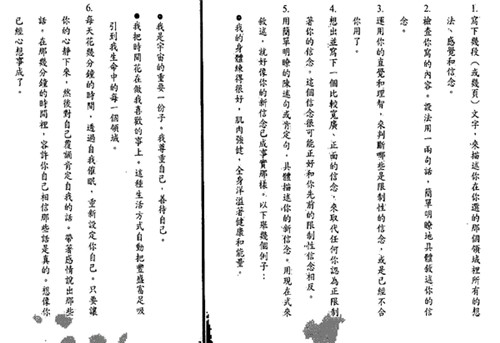 1. 寫下幾段（或幾頁）文字，來描述你在你選的那個領域裡所有的想
法、感覺和信念。
2. 檢查你寫的內容。設法用一兩句話，簡單明瞭地具體敘述你的信
念。
3. 運用你的直覺和理智，來判斷哪些是限制性的信念，或是已經不合
你用了。
4. 想出並寫下一個比較寬廣、正面的信念，來取代任何你認為正限制
著你的信念，這個信念很可能正好和你先前的限制性信念相反。
5. 用簡單明瞭的陳述句或肯定句，具體描述你的新信念。用現在式來
敘述，就好像你的新信念已成事實那樣。以下舉幾個例子：
●我的身體練得很好，肌肉強健，全身洋溢著健康和能量。
●我是宇宙的重要一份子。我尊重自己，善待自己。
●我把時間花在做我喜歡的事上。這種生活方式自動把豐盛富足吸
引到我生命中的每一個領域。
6. 每天花幾分鐘的時間，透過自我催眠，重新設定你自己。只要讓
你的心靜下來，然後對自己覆誦肯定自我的話。帶著感情說出那些
話。在那幾分鐘的時間裡，容許你自己相信那些話是真的。想像你
已經心想事成了。